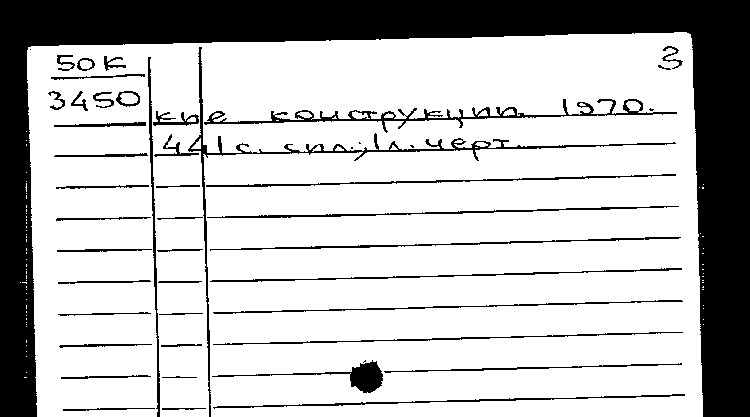 50К 3
3450
кие конструкции. 1970.
441с. с ил.; 1л. черт.